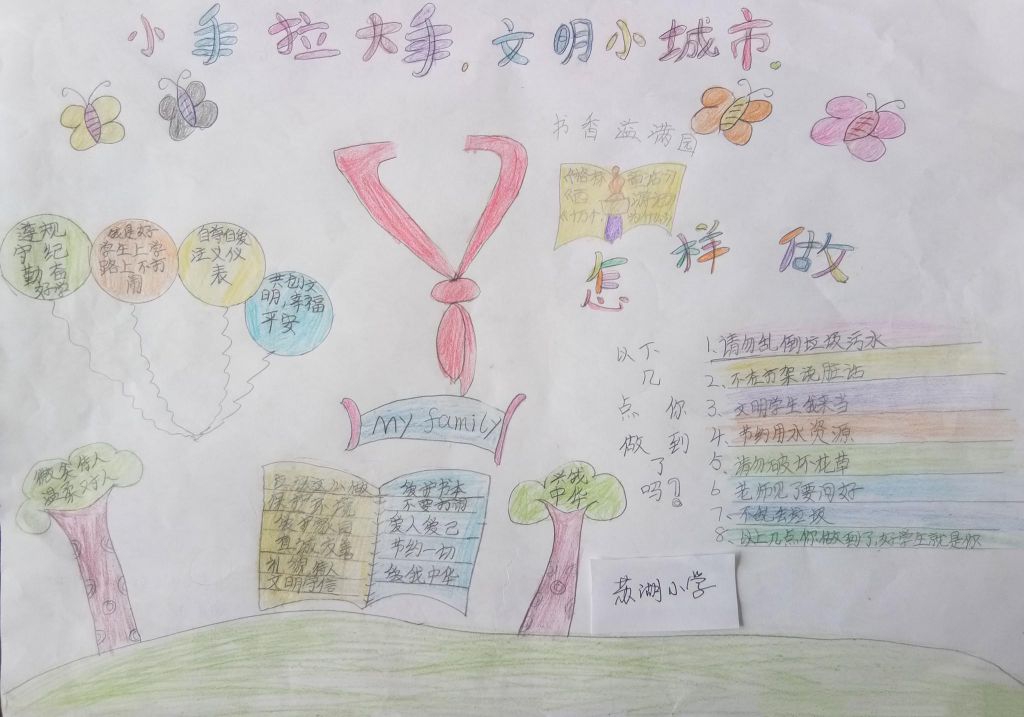 小手拉大手.文明小城市.
书香滋满园
遵规
守纪
勤奋
好学
做良好
学生上学
路上不打
闹
自尊自爱
注义仪
表
共创文
明,幸福
平安
怎样做
以下
几
点你
做到
了
吗?
1.请勿乱倒垃圾污水
2.不在打架说脏话
3.文明学生我来当
4.节约用水资源
5.请勿破坏花草
6.老师见了要问好
7.不乱丢垃圾
8.以上几点你做到了好学生就是你
my family
微笑待人
温柔对人
兴我
中华
应该这么做
保护环境
真诚友善
礼貌待人
文明守信
爱护书本
不要打闹
爱人爱己
节约一切
给我中华
苏湖小学